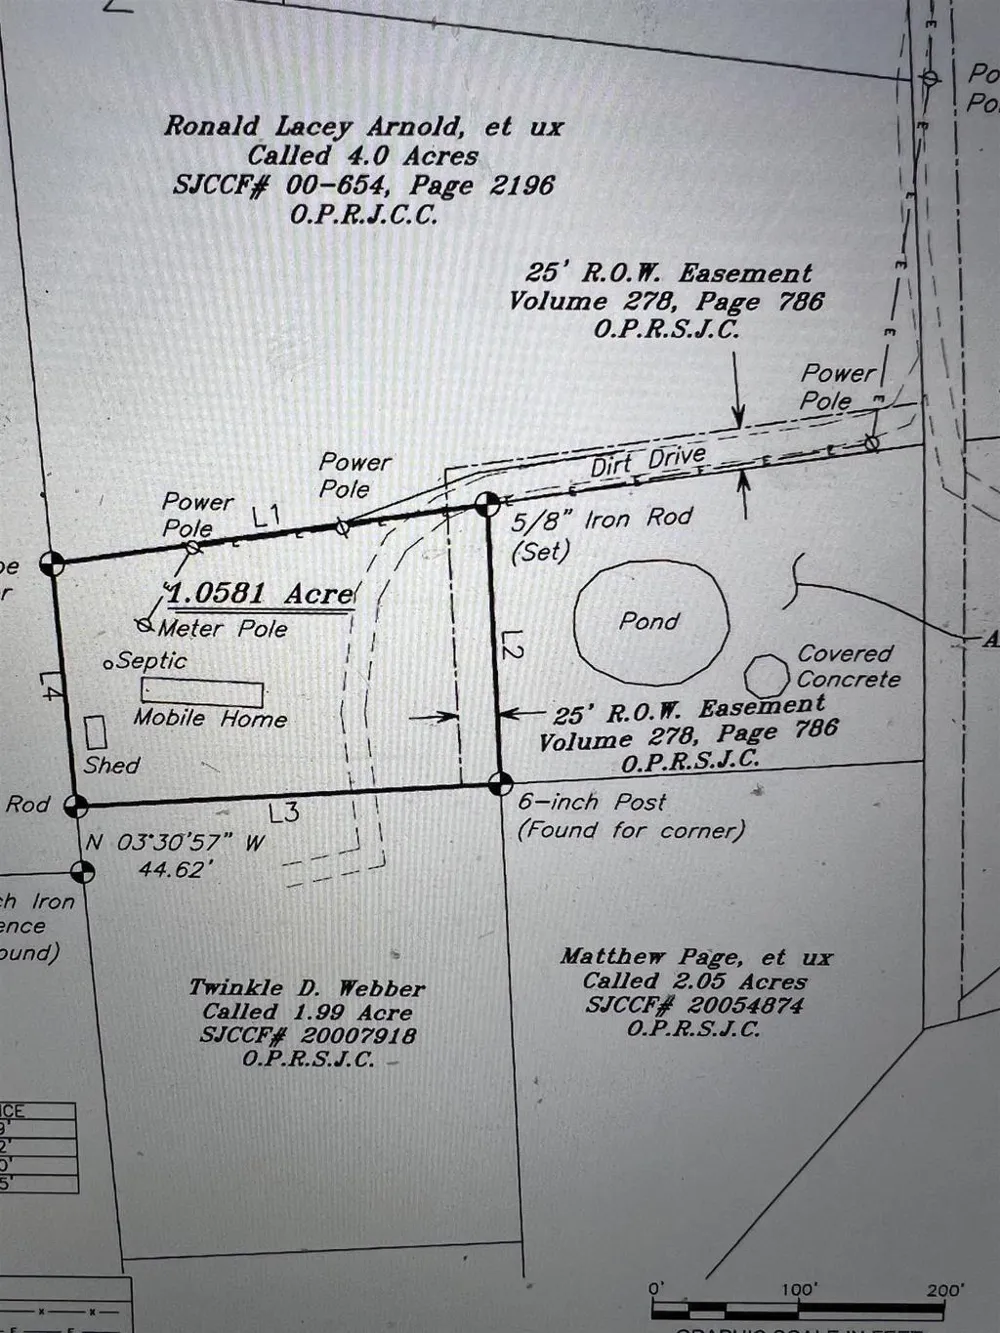 Ronald Lacey Arnold, et ux
Called 4.0 Acres
SJCCF# 00-654, Page 2196
O.P.R.J.C.C.
25' R.O.W. Easement
Volume 278, Page 786
O.P.R.S.J.C.
Power
Pole
Dirt Drive
Power
Pole
Power
Pole
L1
5/8" Iron Rod
(Set)
1.0581 Acre
Meter Pole
Septic
Mobile Home
Shed
L4
L2
Pond
Covered
Concrete
25' R.O.W. Easement
Volume 278, Page 786
O.P.R.S.J.C.
Rod
L3
6-inch Post
(Found for corner)
N 03°30'57" W
44.62'
ch Iron
ence
ound)
Twinkle D. Webber
Called 1.99 Acre
SJCCF# 20007918
O.P.R.S.J.C.
Matthew Page, et ux
Called 2.05 Acres
SJCCF# 20054874
O.P.R.S.J.C.
0' 100' 200'